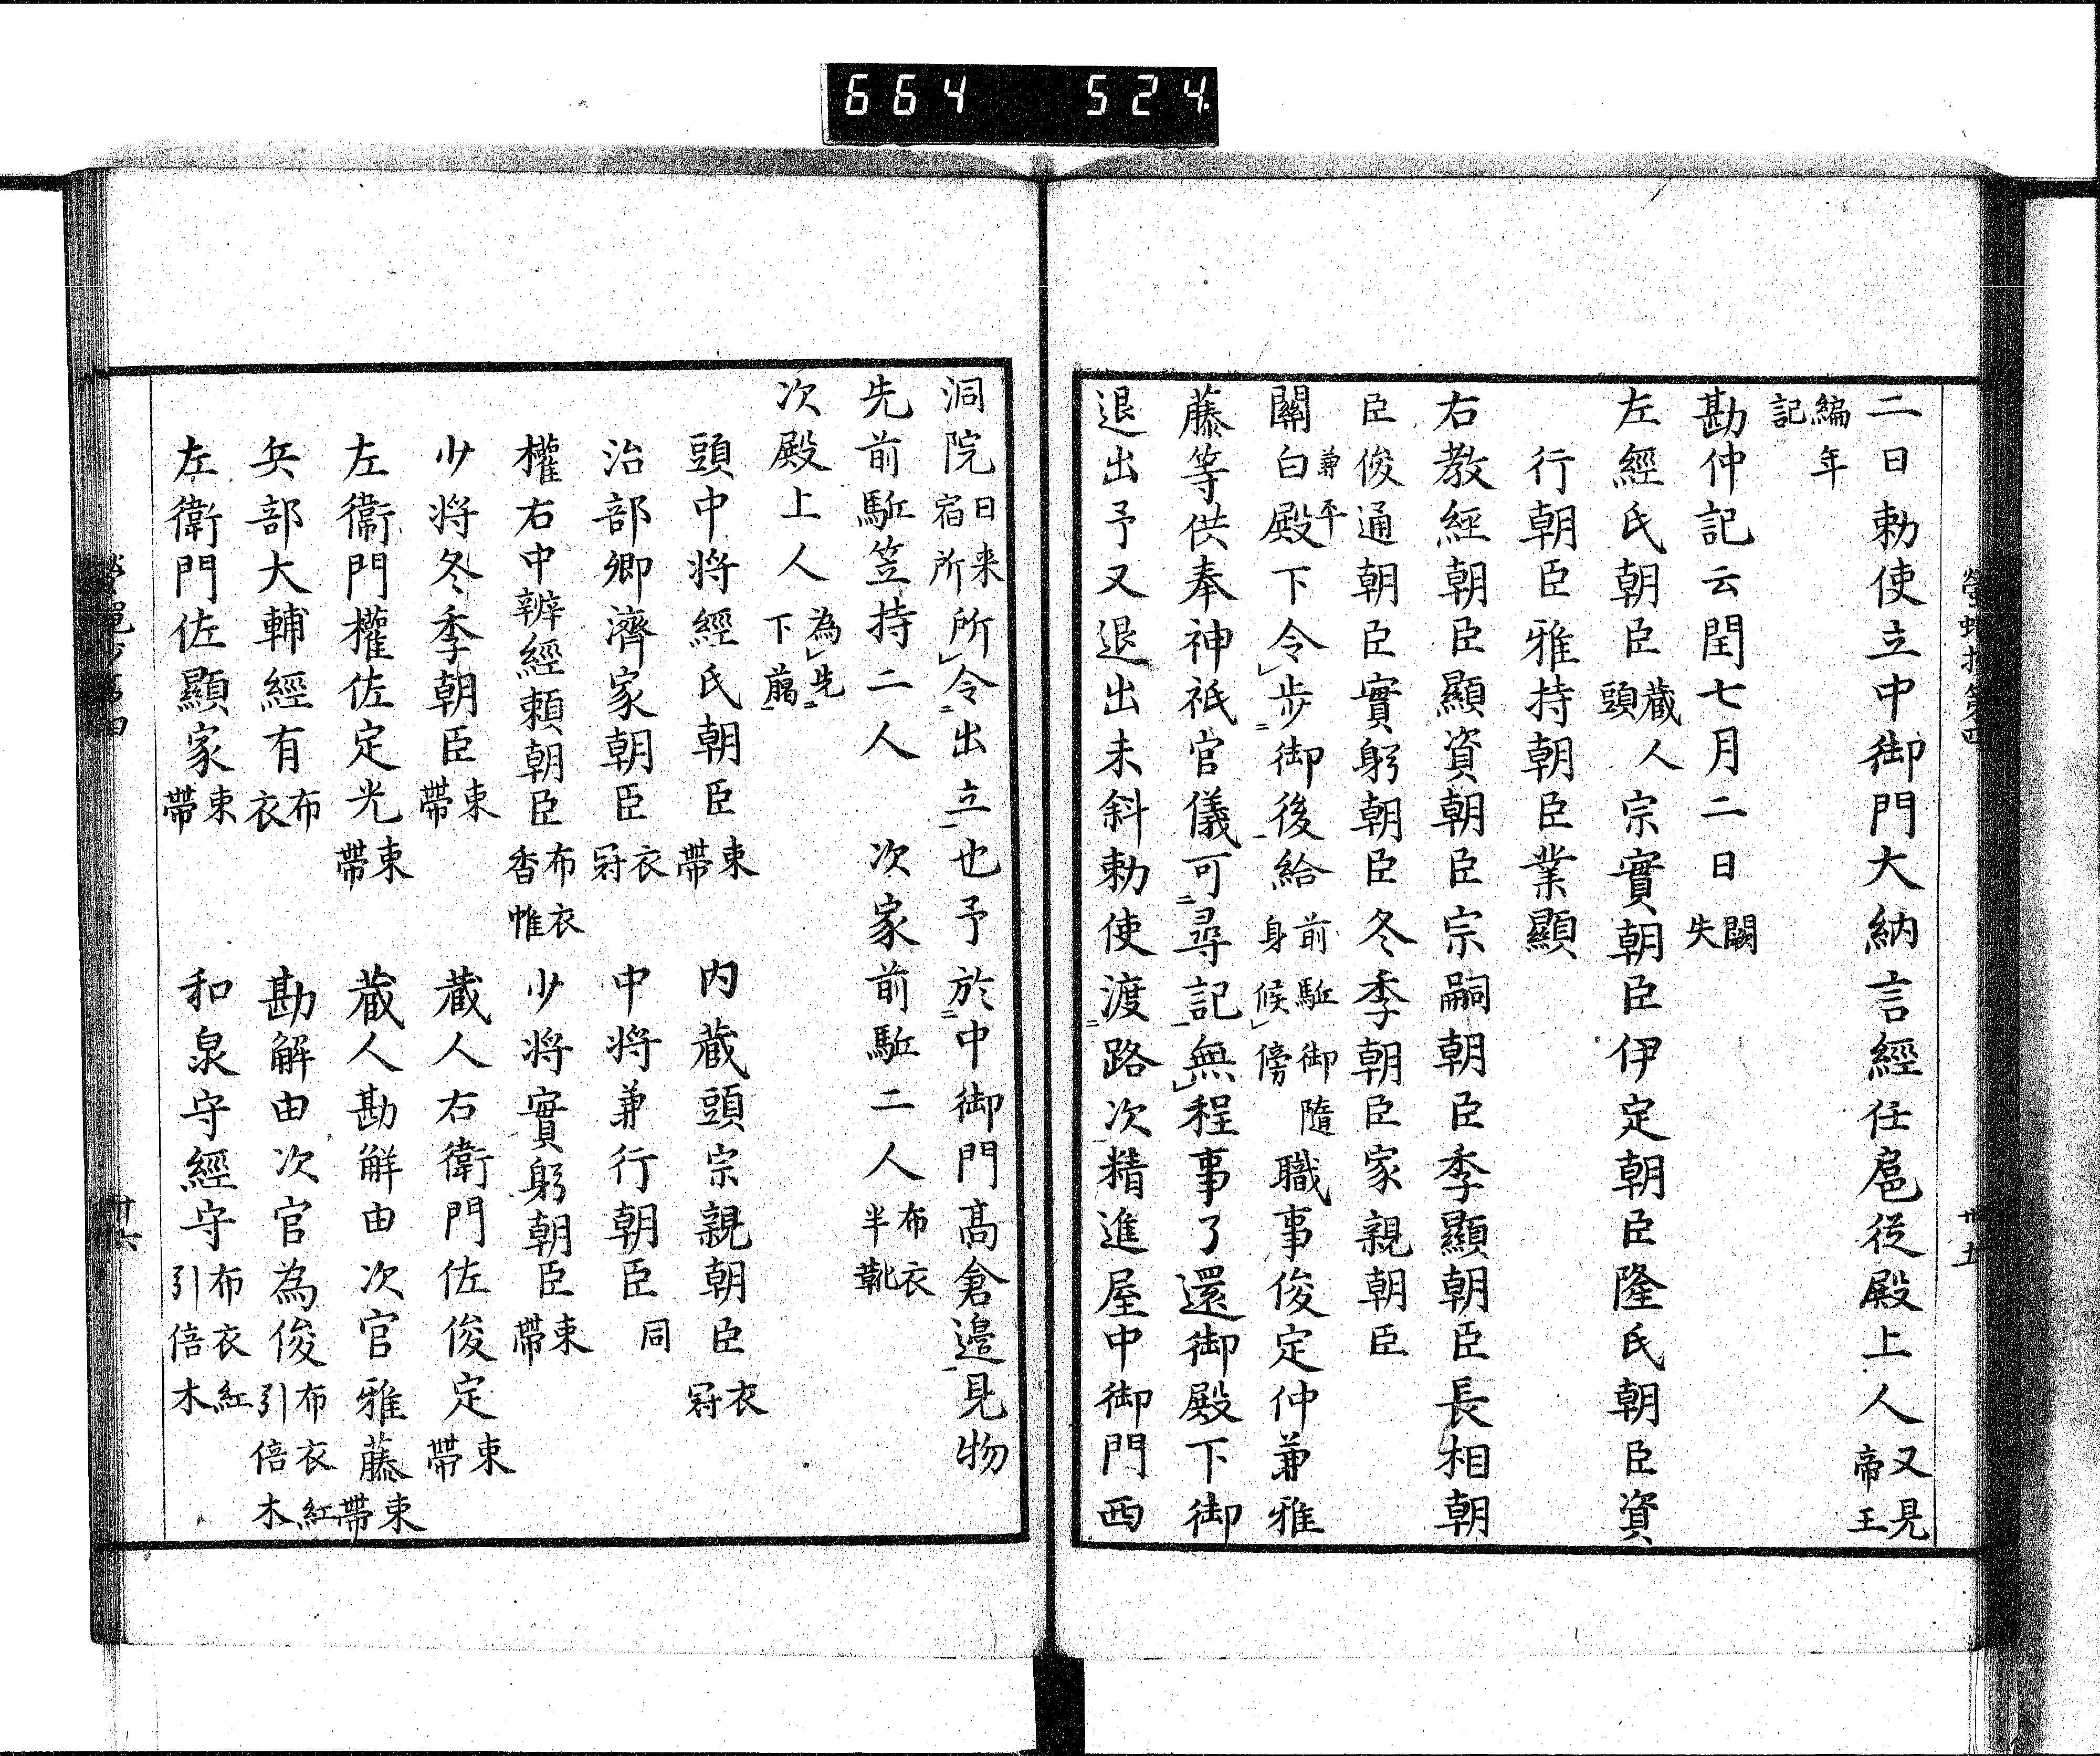 664 524
二日勅使立中御門大納言經任扈従殿上人又見帝王
編年記
勘仲記云閏七月二日闕失
左經氏朝臣蔵人頭宗實朝臣伊定朝臣隆氏朝臣資
行朝臣雅持朝臣業顯
右教經朝臣顯資朝臣宗嗣朝臣季顯朝臣長相朝
臣俊通朝臣實躬朝臣冬季朝臣家親朝臣
兼平
關白殿下令步御後給前駈御隨身候傍職事俊定仲兼雅
藤等供奉神祇官儀可尋記無程事了還御殿下御
退出予又退出未斜勅使渡路次精進屋中御門西
卅五
洞院日来宿所所令出立也予於中御門髙倉邉見物
先前駈笠持二人 次家前駈二人布衣半靴
次殿上人為先下﨟
頭中将經氏朝臣束帶 内蔵頭宗親朝臣衣冠
治部卿濟家朝臣衣冠 中将兼行朝臣同
權右中辨經頼朝臣布衣香帷 少将實躬朝臣束帶
少将冬季朝臣束帶 蔵人右衛門佐俊定束帶
左衞門權佐定光束帶 蔵人勘解由次官雅藤束帶
兵部大輔經有布衣 勘解由次官為俊布衣紅引倍木
左衛門佐顯家束帶 和泉守經守布衣紅引倍木
卅六